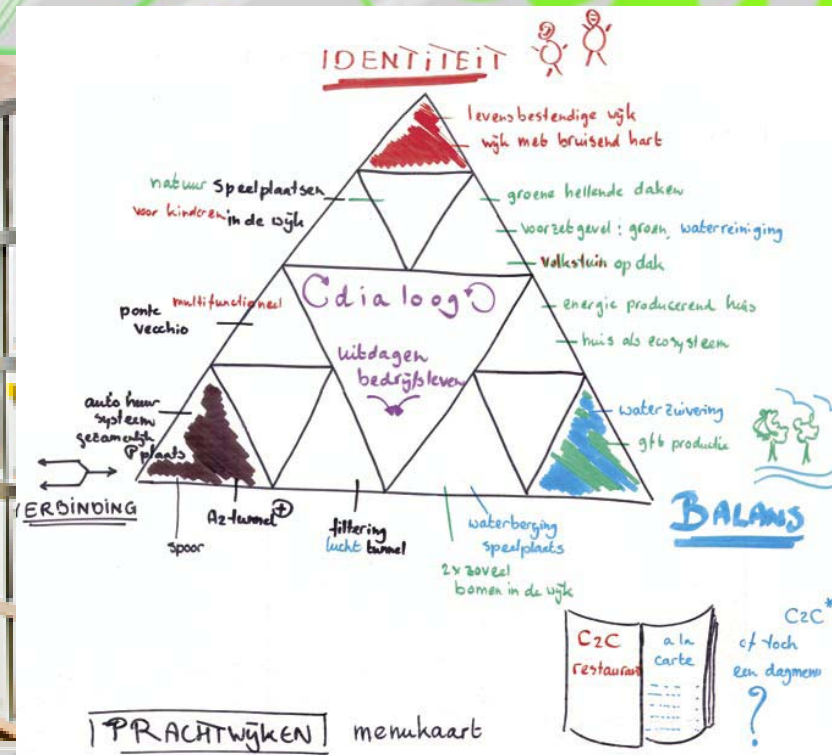 IDENTITEIT
levensbestendige wijk
wijk met bruisend hart
natuur speelplaatsen
voor kinderen in de wijk
groene hellende daken
voorzetgevel: groen, waterreiniging
volkstuin op dak
dialoog
multifunctioneel
ponte
vecchio
energie producerend huis
huis als ecosysteem
uitdagen
bedrijfsleven
auto huur
systeem
gezamenlijk
P plaats
waterzuivering
gfb productie
VERBINDING
BALANS
spoor
A2 tunnel +
filtering
lucht tunnel
waterberging
speelplaats
2x zoveel
bomen in de wijk
C2C
restaurant
a la
carte
C2C*
of toch
een dagmenu
?
PRACHTWIJKEN menukaart